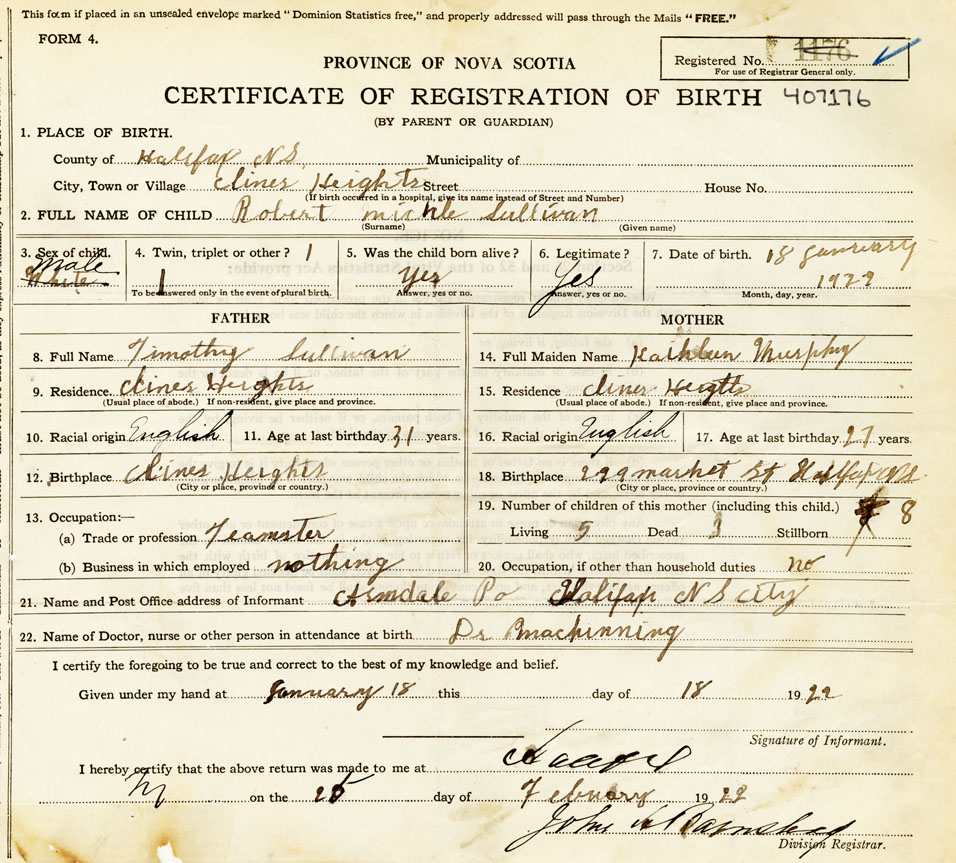 This form if placed in an unsealed envelope marked "Dominion Statistics free," and properly addressed will pass through the Mails "FREE."
FORM 4.
Registered No. 1176
For use of Registrar General only.
PROVINCE OF NOVA SCOTIA
CERTIFICATE OF REGISTRATION OF BIRTH 407176
(BY PARENT OR GUARDIAN)
1. PLACE OF BIRTH.
County of Halifax N.S. Municipality of
City, Town or Village Clines Heights Street House No.
(If birth occurred in a hospital, give its name instead of Street and Number)
2. FULL NAME OF CHILD Robert Sullivan
(Surname) (Given name)
3. Sex of child. 4. Twin, triplet or other ? 1 5. Was the child born alive? 6. Legitimate ? 7. Date of birth. 18 January
Male
White 1 Yes Yes 1922
To be answered only in the event of plural birth. Answer, yes or no. Answer, yes or no. Month, day, year.
FATHER MOTHER
8. Full Name Timothy Sullivan 14. Full Maiden Name Kathleen Murphy
9. Residence Clines Heights 15. Residence Clines Heights
(Usual place of abode.) If non-resident, give place and province. (Usual place of abode.) If non-resident, give place and province.
10. Racial origin English 11. Age at last birthday 31 years. 16. Racial origin English 17. Age at last birthday 27 years.
12. Birthplace Clines Heights 18. Birthplace market St Halifax N.S.
(City or place, province or country.) (City or place, province or country.)
13. Occupation:— 19. Number of children of this mother (including this child.) 8
(a) Trade or profession Teamster Living 5 Dead 3 Stillborn
(b) Business in which employed nothing 20. Occupation, if other than household duties no
21. Name and Post Office address of Informant Armdale Po Halifax N S City
22. Name of Doctor, nurse or other person in attendance at birth Dr
I certify the foregoing to be true and correct to the best of my knowledge and belief.
Given under my hand at January 18 this day of 18 1922
Signature of Informant.
I hereby certify that the above return was made to me at
on the 25 day of Febuary 1922
John
Division Registrar.